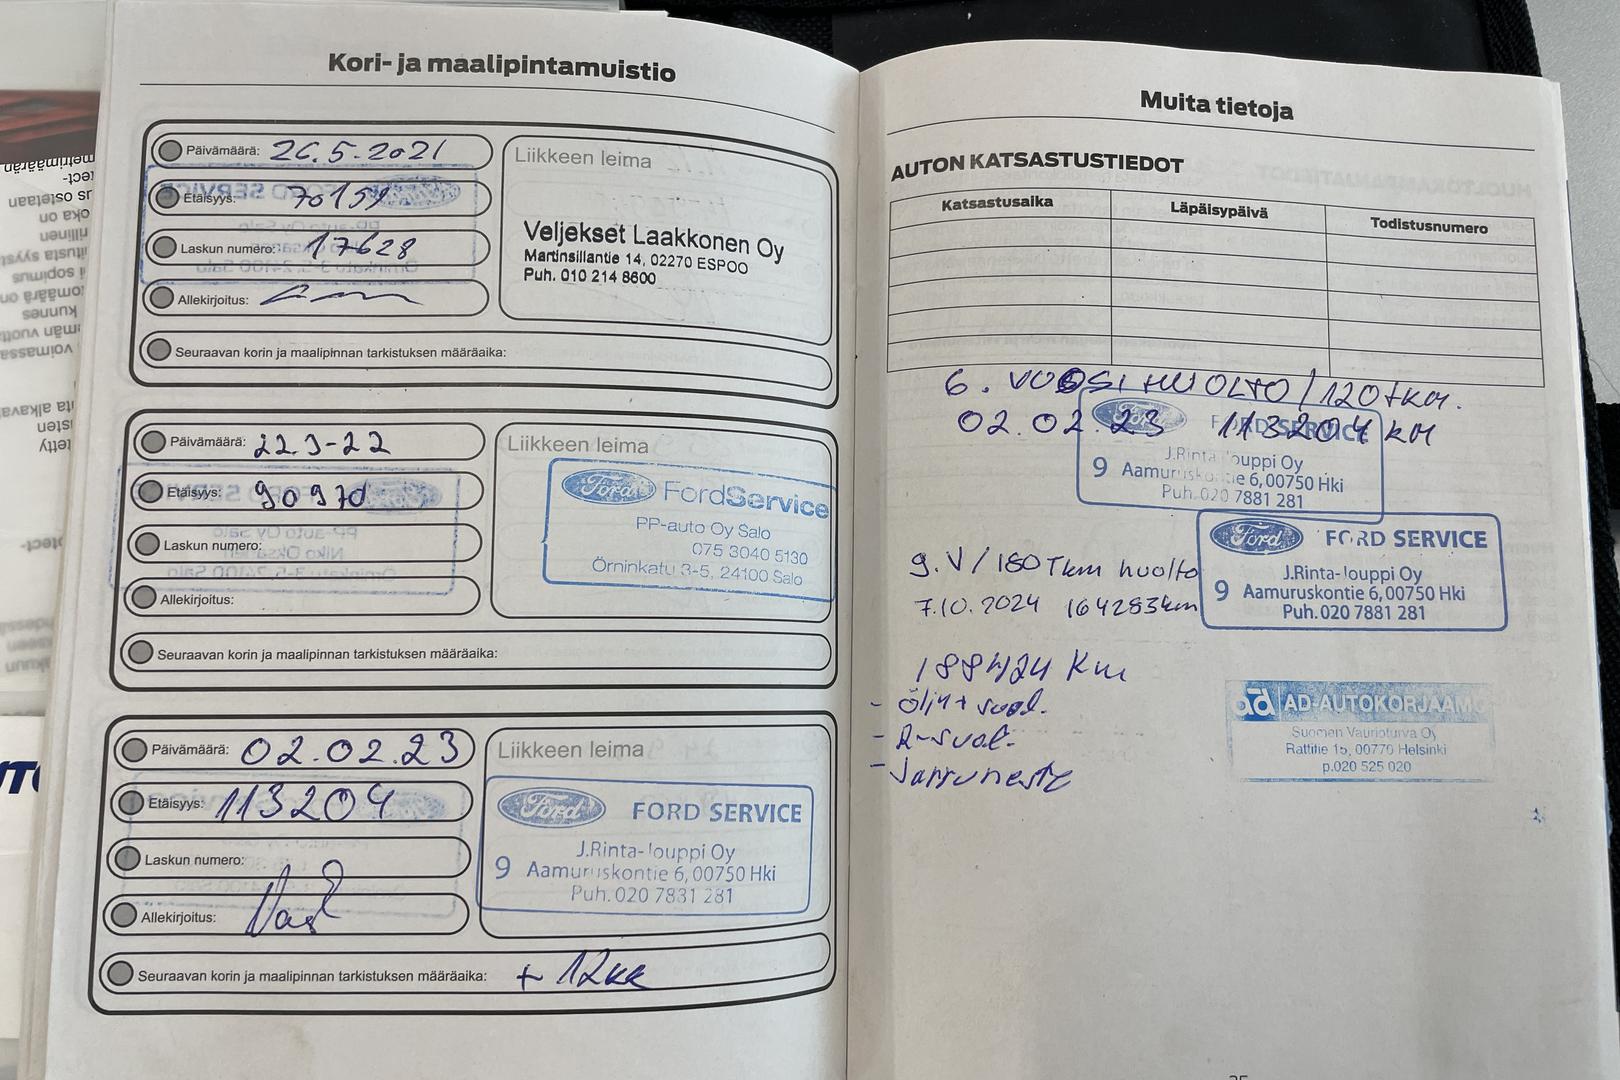 Kori- ja maalipintamuistio
Päivämäärä: 26.5.2021
Etäisyys: 70159
Laskun numero: 17628
Allekirjoitus:
Liikkeen leima
Veljekset Laakkonen Oy
Martinsillantie 14, 02270 ESPOO
Puh. 010 214 8600
Seuraavan korin ja maalipinnan tarkistuksen määräaika:
Päivämäärä: 22.3-22
Etäisyys: 90970
Laskun numero:
Allekirjoitus:
Liikkeen leima
Ford FordService
PP-auto Oy Salo
075 3040 5130
Örninkatu 3-5, 24100 Salo
Seuraavan korin ja maalipinnan tarkistuksen määräaika:
Päivämäärä: 02.02.23
Etäisyys: 113204
Laskun numero:
Allekirjoitus:
Liikkeen leima
Ford FORD SERVICE
J.Rinta-Jouppi Oy
9 Aamuruskontie 6,00750 Hki
Puh.020 7881 281
Seuraavan korin ja maalipinnan tarkistuksen määräaika: + 12kk
Muita tietoja
AUTON KATSASTUSTIEDOT
Katsastusaika Läpäisypäivä Todistusnumero
6. VUOSI HUOLTO / 120 tkm.
02.02.23 113204 km
Ford FORD SERVICE
J.Rinta-Jouppi Oy
9 Aamuruskontie 6,00750 Hki
Puh.020 7881 281
9.V / 180 Tkm huolto
7.10.2024 164283km
Ford FORD SERVICE
J.Rinta-Jouppi Oy
9 Aamuruskontie 6,00750 Hki
Puh.020 7881 281
188424 km
- öljyt + suod.
- R-suod.
- Jarruneste
ad AD-AUTOKORJAAMO
Suomen Vaurioturva Oy
Rattitie 15, 00770 Helsinki
p.020 525 020